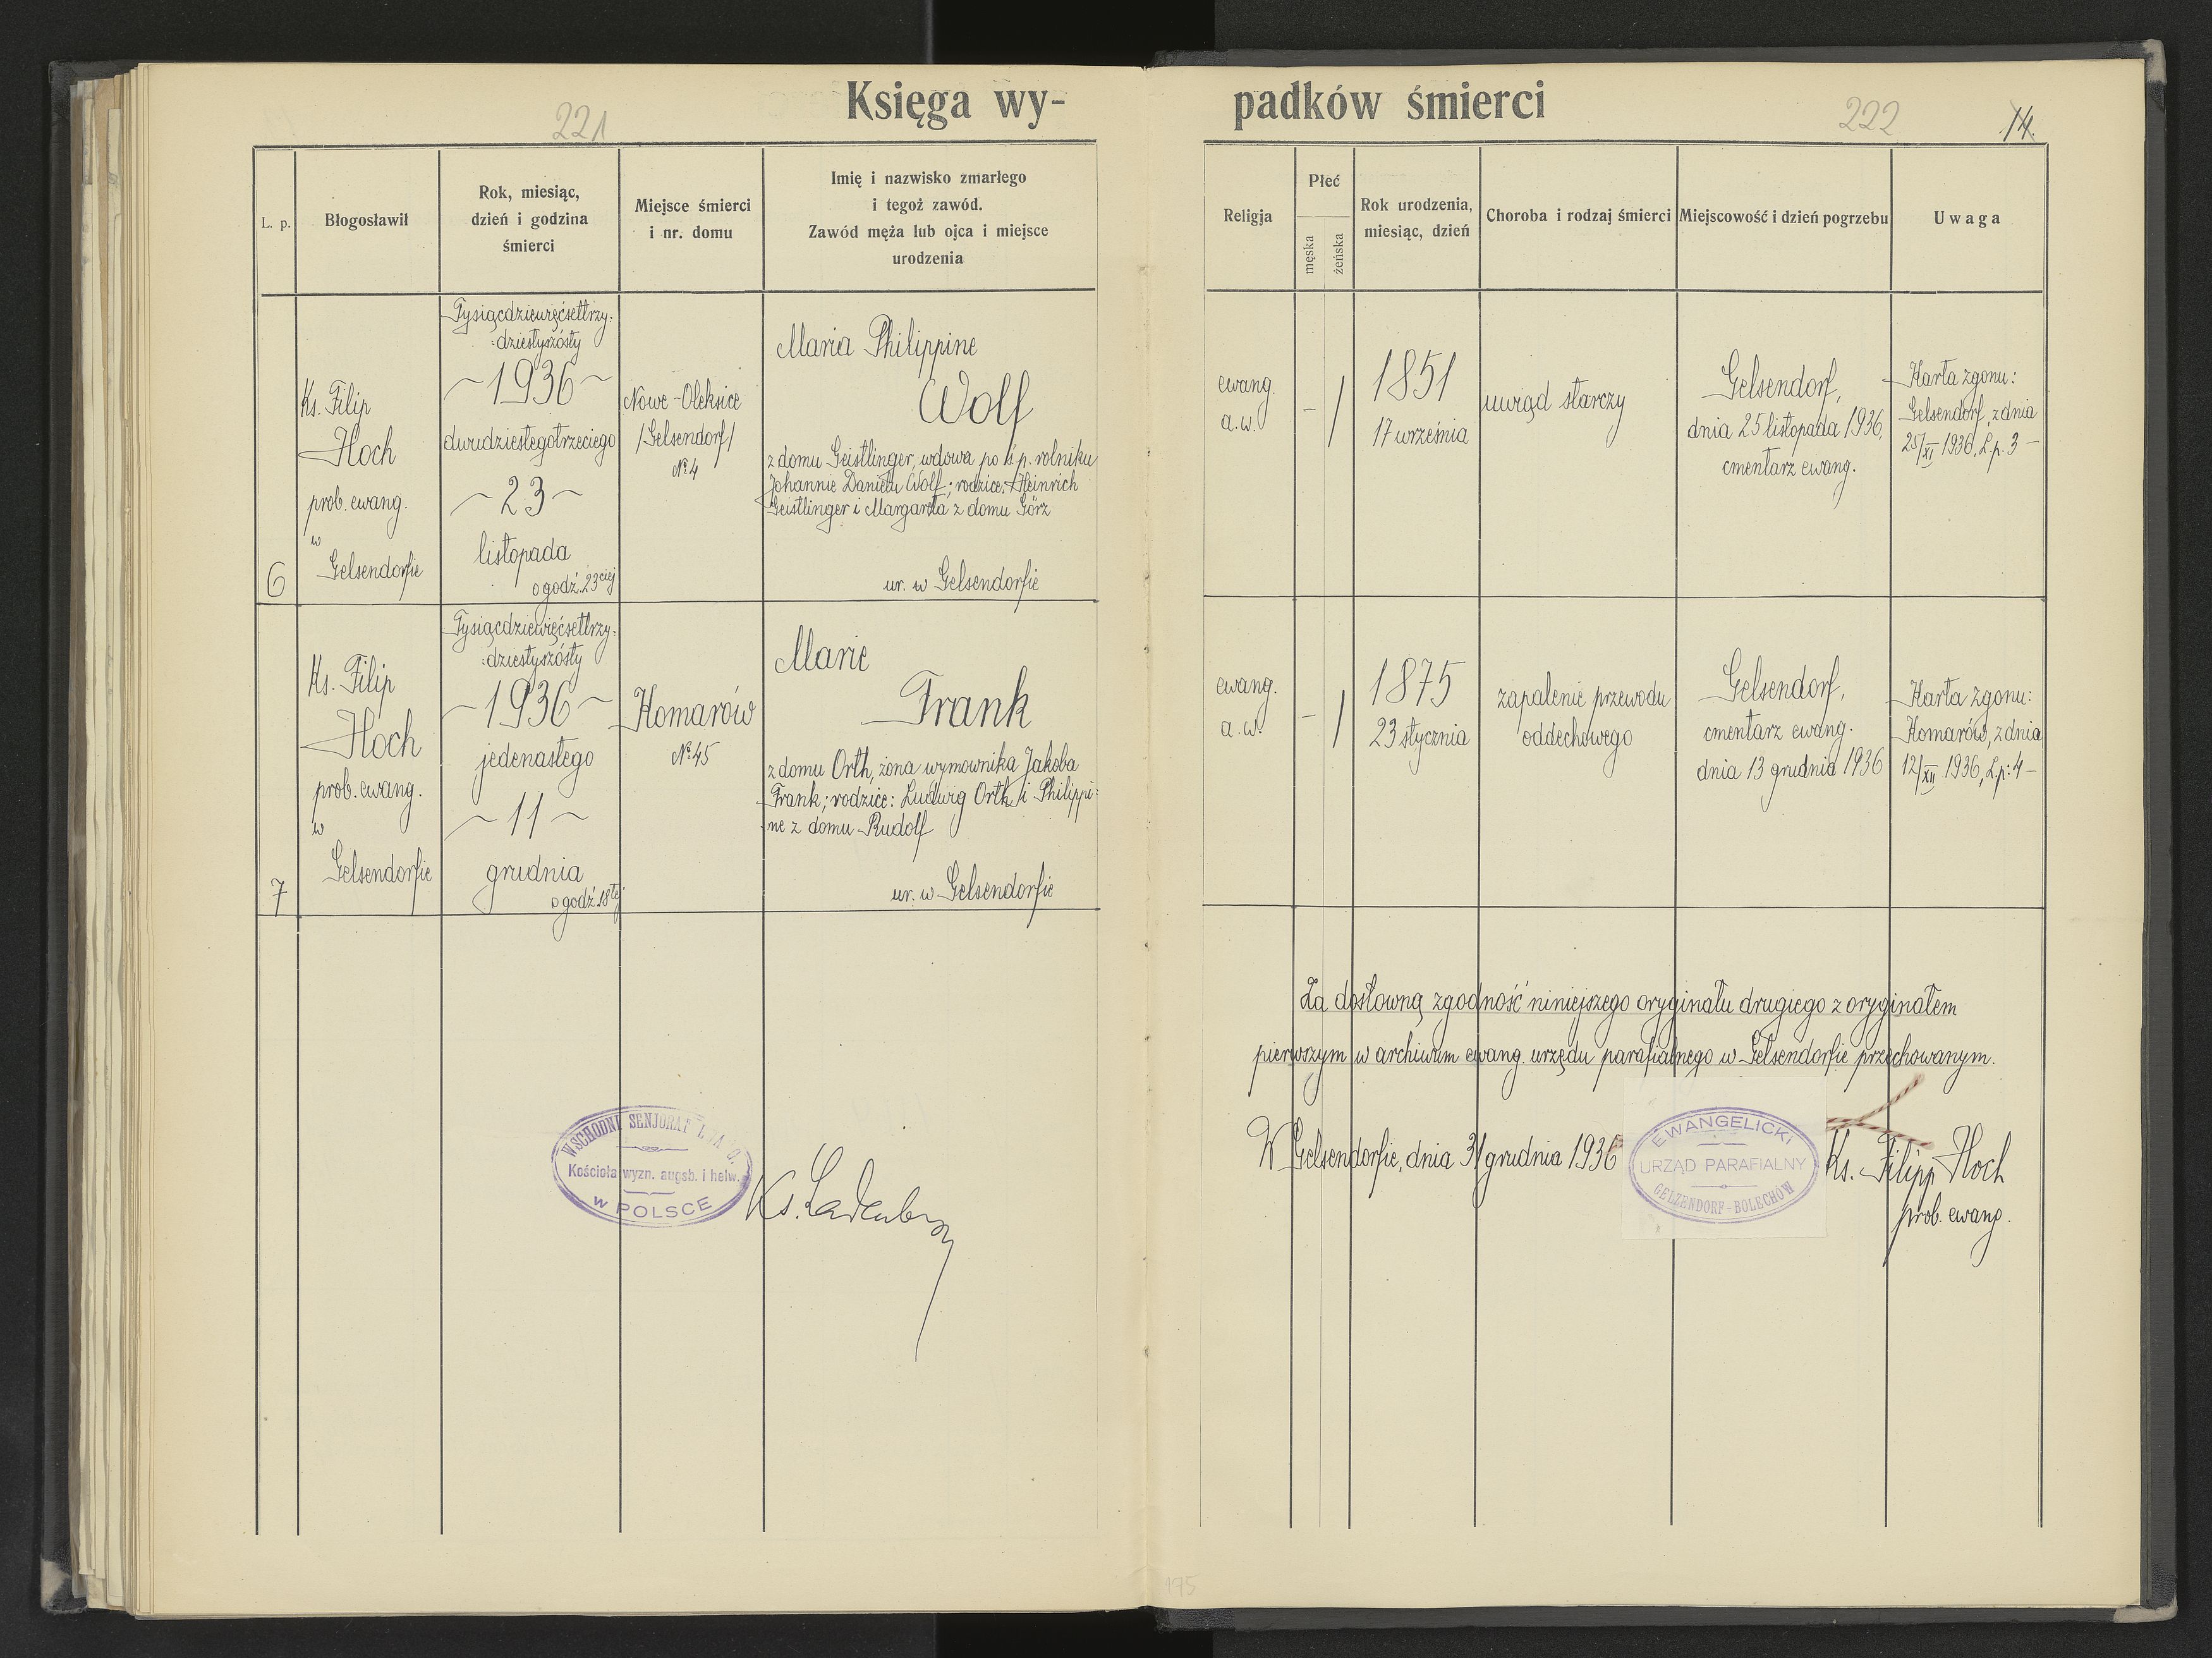 221
Księga wy-
L. p.
Błogosławił
Rok, miesiąc,
dzień i godzina
śmierci
Miejsce śmierci
i nr. domu
Imię i nazwisko zmarłego
i tegoż zawód.
Zawód męża lub ojca i miejsce
urodzenia
6
Ks. Filip
Hoch
prob. ewang.
w
Gelsendorfie
Tysiącdziewięćsettrzy-
-dziestyszósty
~1936~
dwudziestegotrzeciego
~23~
listopada
o godź. 23ciej
Nowe-Oleksice
/Gelsendorf/
№ 4
Maria Philippine
Wolf
z domu Geistlinger, wdowa po ś.p. rolniku
Johannie Danielu Wolf; rodzice: Heinrich
Geistlinger i Margareta z domu Görz
ur. w Gelsendorfie
7
Ks. Filip
Hoch
prob. ewang.
w
Gelsendorfie
Tysiącdziewięćsettrzy-
-dziestyszósty
~1936~
jedenastego
~11~
grudnia
o godź 18tej
Komarów
№ 45
Marie
Frank
z domu Orth, żona wymownika Jakoba
Frank; rodzice: Ludwig Orth i Philippi-
ne z domu Rudolf
ur. w Gelsendorfie
WSCHODNI SENJORAT
Kościoła wyzn. augsb. i helw.
w POLSCE
Ks.
padków śmierci
222
14.
Religja
Płeć
męska
żeńska
Rok urodzenia,
miesiąc, dzień
Choroba i rodzaj śmierci
Miejscowość i dzień pogrzebu
Uwaga
ewang.
a.w.
–
/
1851
17 września
uwiąd starczy
Gelsendorf,
dnia 25 listopada 1936,
cmentarz ewang.
Karta zgonu:
Gelsendorf, z dnia
25/XI 1936, L.p. 3 –
ewang.
a.w.
–
/
1875
23 stycznia
zapalenie przewodu
oddechowego
Gelsendorf,
cmentarz ewang.
dnia 13 grudnia 1936
Karta zgonu:
Komarów, z dnia
12/XII 1936, L.p: 4 –
Za dosłowną zgodność niniejszego oryginału drugiego z oryginałem
pierwszym w archiwum ewang. urzędu parafialnego w Gelsendorfie przechowanym.
W Gelsendorfie, dnia 31 grudnia 1936
EWANGELICKI
URZĄD PARAFIALNY
GELZENDORF-BOLECHÓW
Ks. Filipp Hoch
prob. ewang.
175